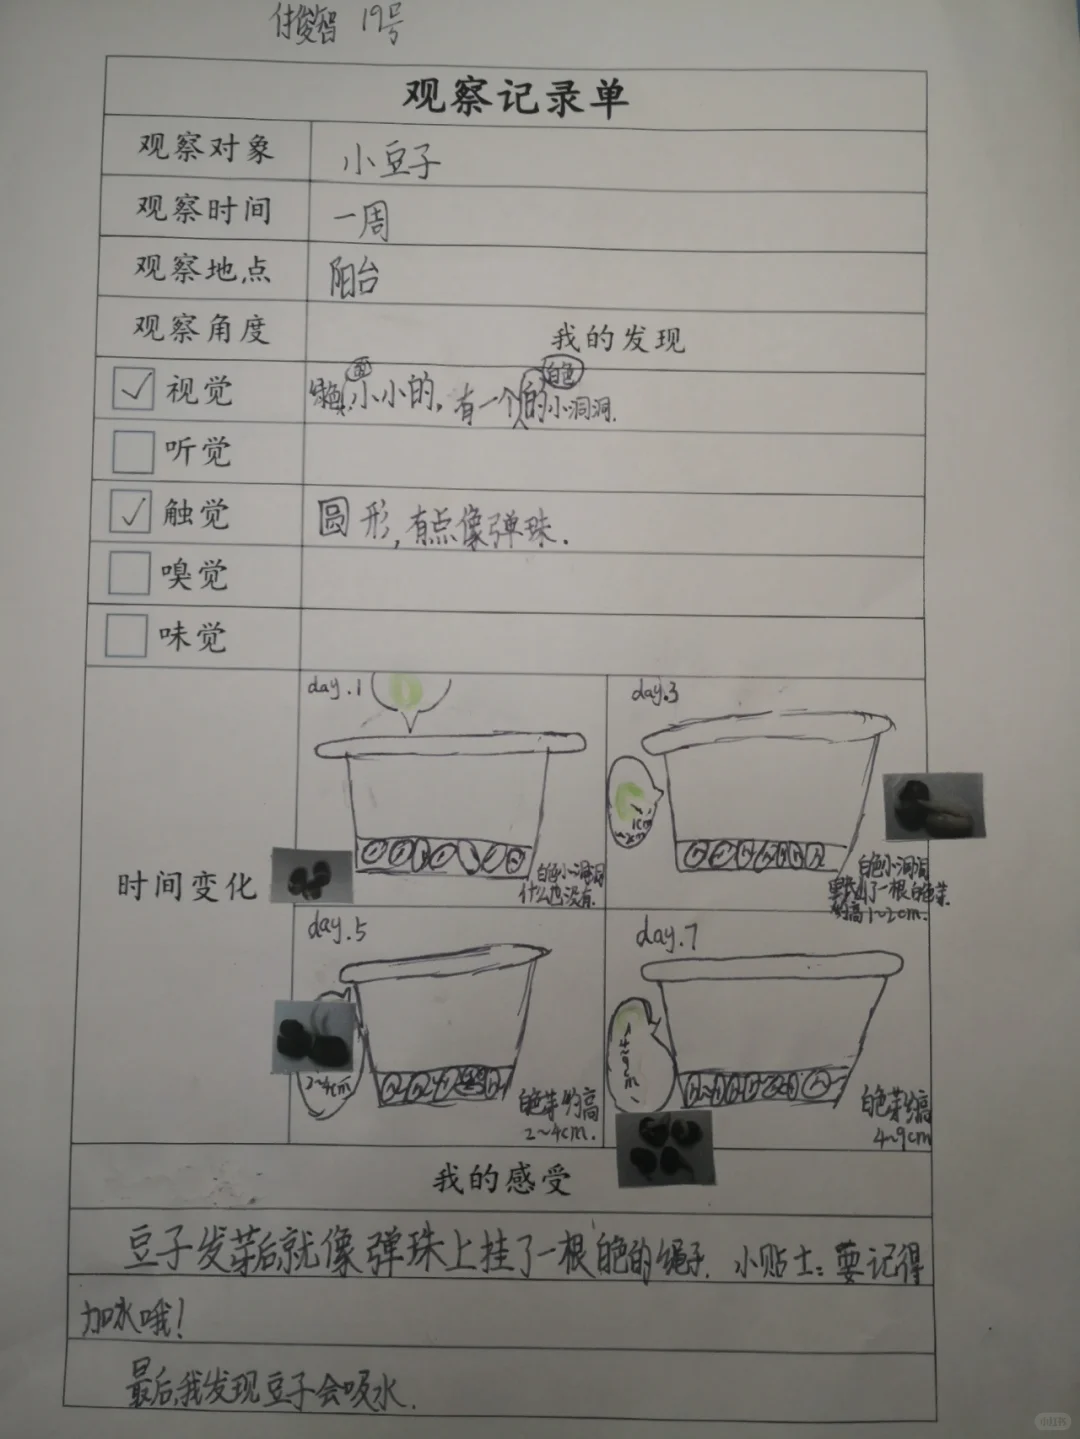 付俊智 19号
观察记录单
观察对象 小豆子
观察时间 一周
观察地点 阳台
观察角度 我的发现
视觉 绿色,小小的,有一个白色的小洞洞.
听觉
触觉 圆形,有点像弹珠.
嗅觉
味觉
时间变化
day.1
白色小洞洞
什么也没有.
day.3
1cm
白色小洞洞
里长出了一根白色芽.
约高1~2cm.
day.5
2~4cm
白色芽约高
2~4cm.
day.7
4~9cm
白色芽约高
4~9cm
我的感受
豆子发芽后,就像弹珠上挂了一根白色的绳子. 小贴士:要记得
加水哦!
最后,我发现豆子会吸水.
小红书